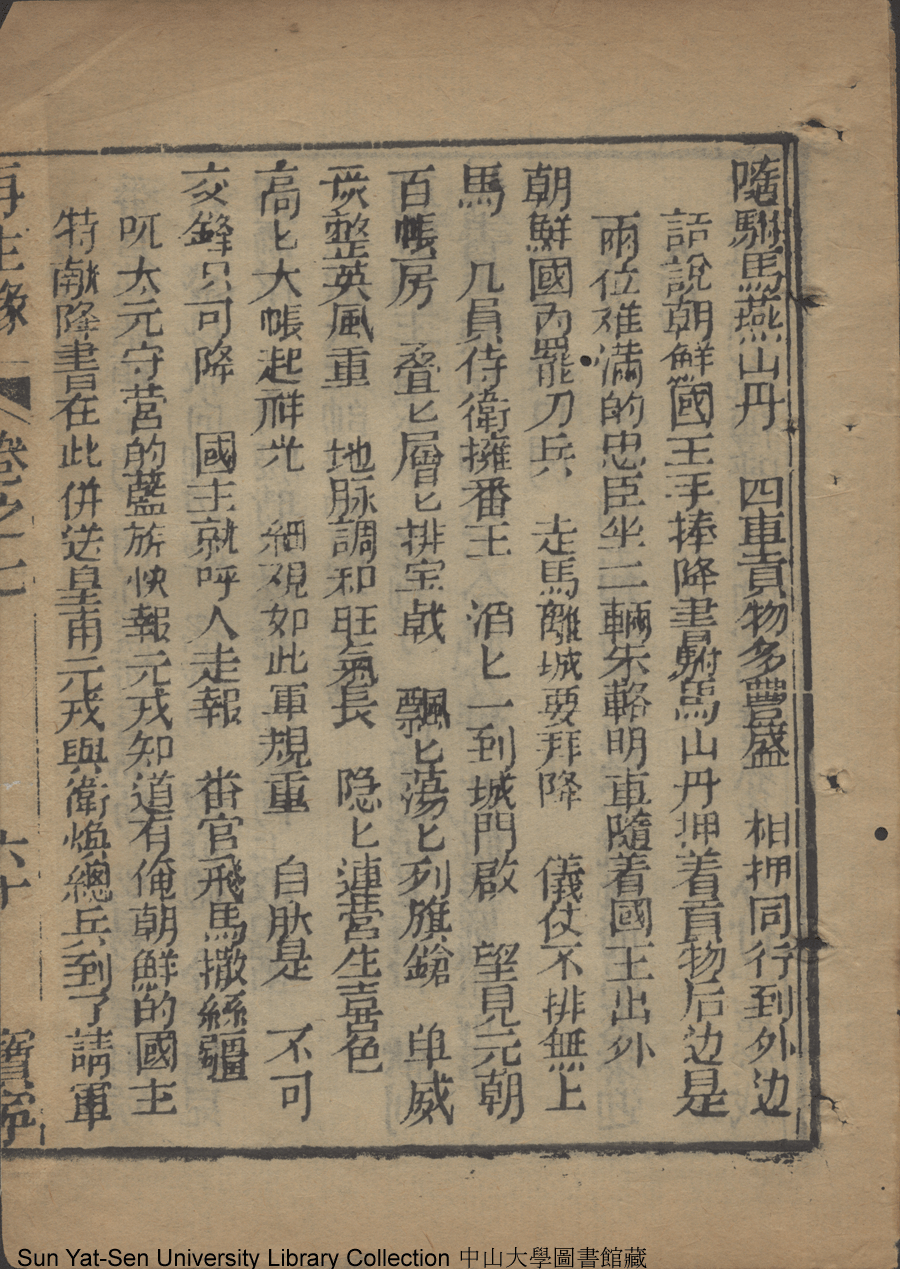 隨駙馬燕山丹　四車貢物多豐盛　相押同行到外边
話說朝鮮國王手捧降書駙馬山丹押着貢物后边是
兩位难滿的忠臣坐二輛朱輅明車隨着國王出外
朝鮮國內罷刀兵　走馬離城要拜降　儀仗不排無上
馬　几員侍衛擁番王　滔匕一到城門啟　望見元朝
百帳房　叠匕層匕排宝戟　飄匕蕩匕列旗鎗　单威
嚴整英風重　地脉調和旺氣長　隐匕連营生喜色
高匕大帳起祥光　細观如此軍規重　自肰是　不可
交鋒只可降　國主就呼人走報　畨官飛馬撒絲韁
叽太元守营的藍旂快報元戎知道有俺朝鮮的國主
特献降書在此併送皇甫元戎與衛煥總兵到了請軍
再生緣　卷之七　六十　寶寧
Sun Yat-Sen University Library Collection 中山大學圖書館藏